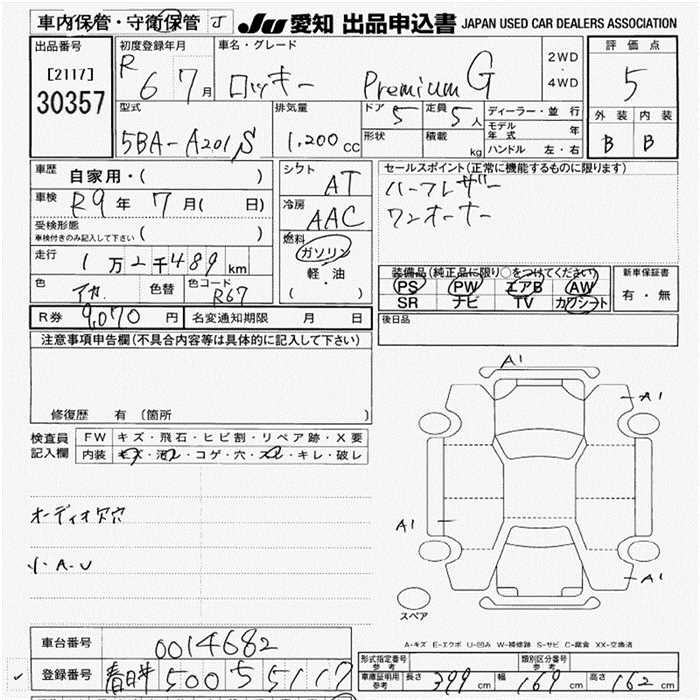 車内保管・守衛保管 J
JU 愛知 出品申込書 JAPAN USED CAR DEALERS ASSOCIATION
出品番号
[2117]
30357
初度登録年月
R6 7月
車名・グレード
ロッキー Premium G
2WD
・
4WD
評価点
5
外装 内装
B B
型式
5BA-A201S
排気量
1,200cc
ドア 5
形状
定員 5人
積載 kg
ディーラー・並行
モデル年式 年
ハンドル 左・右
車歴 自家用・( )
車検 R9年 7月( 日)
受検形態
車検付きのみ記入して下さい ( )
走行 1万2千489km
色 アカ 色替 色コード R67
R券 9,070円 名変通知期限 月 日
シフト AT
冷房 AAC
燃料 ガソリン
軽・油
( )
セールスポイント(正常に機能するものに限ります)
ハーフレザー
ワンオーナー
装備品(純正品に限り○をつけてください)
PS PW エアB AW
SR ナビ TV カワシート
新車保証書
有・無
後日品
注意事項申告欄(不具合内容等は具体的に記入して下さい)
修復歴 有 (箇所 )
検査員記入欄
FW キズ・飛石・ヒビ割・リペア跡・X要
内装 キズ・汚レ・コゲ・穴・スレ・キレ・破レ
オーディオ欠穴
小A・U
A1
A1
A1
A1
スペア
A-キズ E-エクボ U-凹み W-補修跡 S-サビ C-腐食 XX-交換済
車台番号 0014682
登録番号 春日井 500 5 5117
形式指定番号 参考
類別区分番号 参考
車庫証明用 参考 長さ 399cm 幅 169cm 高さ 162cm